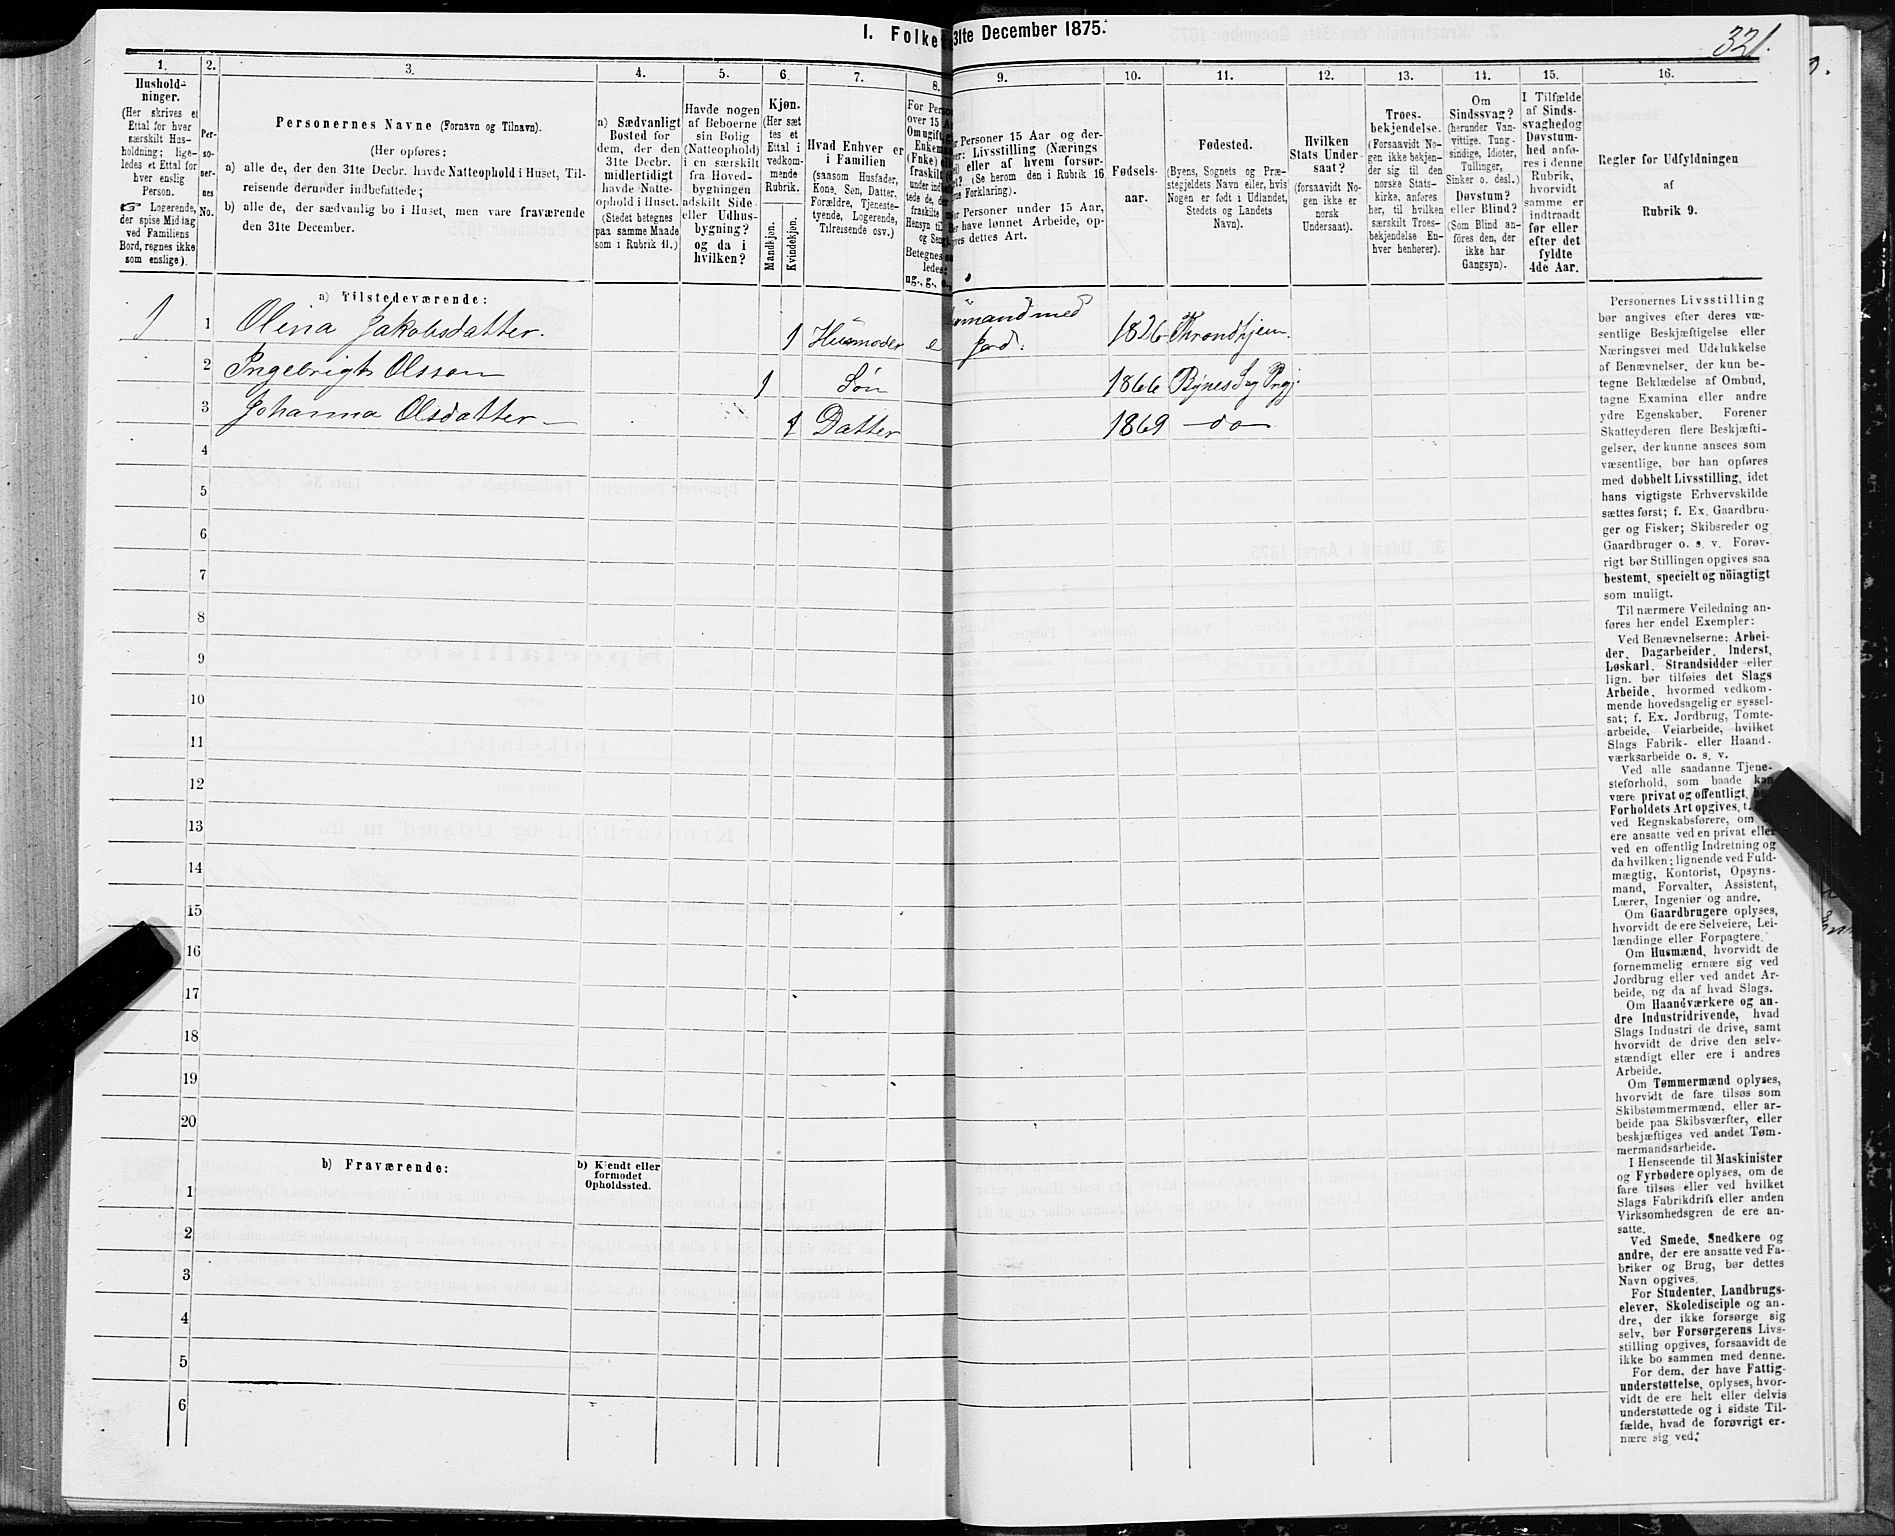 1. Folke 31te December 1875.
321.
1. 2. 3. 4. 5. 6. 7. 8. 9. 10. 11. 12. 13. 14. 15. 16.
Hushold-
ninger.
(Her skrives et
Ettal for hver
særskilt Hus-
holdning; lige-
ledes et Ettal for
hver enslig
Person.
☞ Logerende,
der spise Middag
ved Familiens
Bord, regnes ikke
som enslige).
Per-
so-
ner-
nes
No.
Personernes Navne (Fornavn og Tilnavn).
(Her opføres:
a) alle de, der den 31te Decbr. havde Natteophold i Huset, Til-
reisende derunder indbefattede;
b) alle de, der sædvanlig bo i Huset, men vare fraværende
den 31te December.
a) Sædvanligt
Bosted for
dem, der den
31te Decbr.
midlertidigt
havde Natte-
ophold i Huset.
(Stedet betegnes
paa samme Maade
som i Rubrik 11.)
Havde nogen
af Beboerne
sin Bolig
(Natteophold)
i en særskilt
fra Hoved-
bygningen
adskilt Side-
eller Udhus-
bygning?
og da i
hvilken?
Kjøn.
(Her sæt-
tes et
Ettal i
vedkom-
mende
Rubrik.
Mandkjøn.
Kvindekjøn.
Hvad Enhver er
i Familien
(saasom Husfader,
Kone, Søn, Datter,
Forældre, Tjeneste-
tyende, Logerende,
Tilreisende osv.)
For Perso
over 15 A
Om ugift, g
Enkema
(Enke) el
fraskilt
under ind
tede de, d
fraskilte
Hensyn til
og Sen
Betegnes
ledes:
ug., g., e.,
Personer 15 Aar og der-
er: Livsstilling (Nærings
eller af hvem forsør-
get? (Se herom den i Rubrik 16
ne Forklaring).
or Personer under 15 Aar,
er have lønnet Arbeide, op-
gives dettes Art.
Fødsels-
aar.
Fødested.
(Byens, Sognets og Præ-
stegjeldets Navn eller, hvis
Nogen er født i Udlandet,
Stedets og Landets
Navn).
Hvilken
Stats Under-
saat?
(forsaavidt No-
gen ikke er
norsk
Undersaat).
Troes-
bekjendelse.
(Forsaavidt No-
gen ikke bekjen-
der sig til den
norske Stats-
kirke, anføres
her, til hvilken
særskilt Troes-
bekjendelse En-
hver henhører).
Om
Sindssvag?
(herunder Van-
vittige, Tung-
sindige, Idioter,
Tullinger,
Sinker o. desl.)
Døvstum?
eller Blind?
(Som Blind an-
føres den, der
ikke har
Gangsyn).
I Tilfælde
af Sinds-
svaghed og
Døvstum-
hed anfø-
res i denne
Rubrik,
hvorvidt
samme er
indtraadt
før eller
efter det
fyldte
4de Aar.
Regler for Udfyldningen
af
Rubrik 9.
a) Tilstedeværende:
1 1 Olina Jakobsdatter. 1 Husmoder e mand med Jord. 1826 Throndhjem.
2 Ingebrigt Olsson 1 Søn 1866 Bynes S og Prgj.
3 Johanna Olsdatter 1 Datter 1869 do
4
5
6
7
8
9
10
11
12
13
14
15
16
17
18
19
20
b) Fraværende:
b) Kjendt eller
formodet
Opholdssted.
1
2
3
4
5
6
Personernes Livsstilling
bør angives efter deres væ-
sentlige Beskjæftigelse eller
Næringsvei med Udelukkelse
af Benævnelser, der kun be-
tegne Beklædelse af Ombud,
tagne Examina eller andre
ydre Egenskaber. Forener
Skatteyderen flere Beskjæfti-
gelser, der kunne ansees som
væsentlige, bør han opføres
med dobbelt Livsstilling, idet
hans vigtigste Erhvervskilde
sættes først; f. Ex. Gaardbru-
ger og Fisker; Skibsreder og
Gaardbruger o. s. v. Forøv-
rigt bør Stillingen opgives saa
bestemt, specielt og nøiagtigt
som muligt.
Til nærmere Veiledning an-
føres her endel Exempler:
Ved Benævnelserne: Arbei-
der, Dagarbeider, Inderst,
Løskarl, Strandsidder eller
lign. bør tilføies det Slags
Arbeide, hvormed vedkom-
mende hovedsagelig er syssel-
sat; f. Ex. Jordbrug, Tomte-
arbeide, Veiarbeide, hvilket
Slags Fabrik- eller Haand-
værksarbeide o. s. v.
Ved alle saadanne Tjene-
steforhold, som baade kan
være privat og offentligt, bør
Forholdets Art opgives, t.
ved Regnskabsførere, om
ere ansatte ved en privat eller
ved en offentlig Indretning og
da hvilken; lignende ved Fuld-
mægtig, Kontorist, Opsyns-
mand, Forvalter, Assistent,
Lærer, Ingeniør og andre.
Om Gaardbrugere oplyses,
hvorvidt de ere Selveiere, Lei-
lændinge eller Forpagtere.
Om Husmænd, hvorvidt de
fornemmelig ernære sig ved
Jordbrug eller ved andet Ar-
beide, og da af hvad Slags.
Om Haandværkere og an-
dre Industridrivende, hvad
Slags Industri de drive, samt
hvorvidt de drive den selv-
stændigt eller ere i andres
Arbeide.
Om Tømmermænd oplyses,
hvorvidt de fare tilsøs som
Skibstømmermænd, eller ar-
beide paa Skibsværfter, eller
beskjæftiges ved andet Tøm-
mermandsarbeide.
I Henseende til Maskinister
og Fyrbødere oplyses, om de
fare tilsøs eller ved hvilket
Slags Fabrikdrift eller anden
Virksomhedsgren de ere an-
satte.
Ved Smede, Snedkere og
andre, der ere ansatte ved Fa-
briker og Brug, bør dettes
Navn opgives.
For Studenter, Landbrugs-
elever, Skoledisciple og an-
dre, der ikke forsørge sig
selv, bør Forsørgerens Livs-
stilling opgives, forsaavidt de
ikke bo sammen med denne.
For dem, der have Fattig-
understøttelse, oplyses, hvor-
vidt de ere helt eller delvis
understøttede og i sidste Til-
fælde, hvad de forøvrigt er-
nære sig ved.